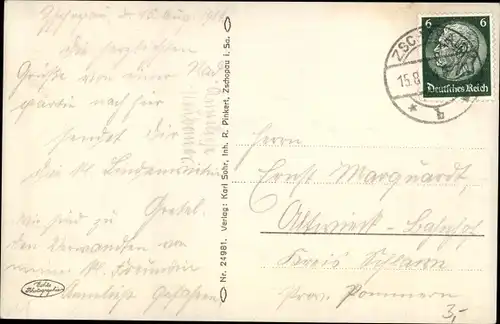 Zschopau, d. 15. Aug. 19
Die herzlichsten
Grüße von einer Rad-
partie nach hier
sendet Dir
Gretel.
Wir sind zu
den Verwandten von
meiner kl. Freundin
Annelies gefahren
Echte Photographie
Nr. 24981. Verlag: Karl Sohr, Inh. R. Pinkert, Zschopau i. Sa.
6 6
Deutsches Reich
ZSCHOPAU
15.8
b
Herrn
Ernst Marquardt,
Altwieck-Bahnhof
Kreis Schlawe
Prov. Pommern
3,-